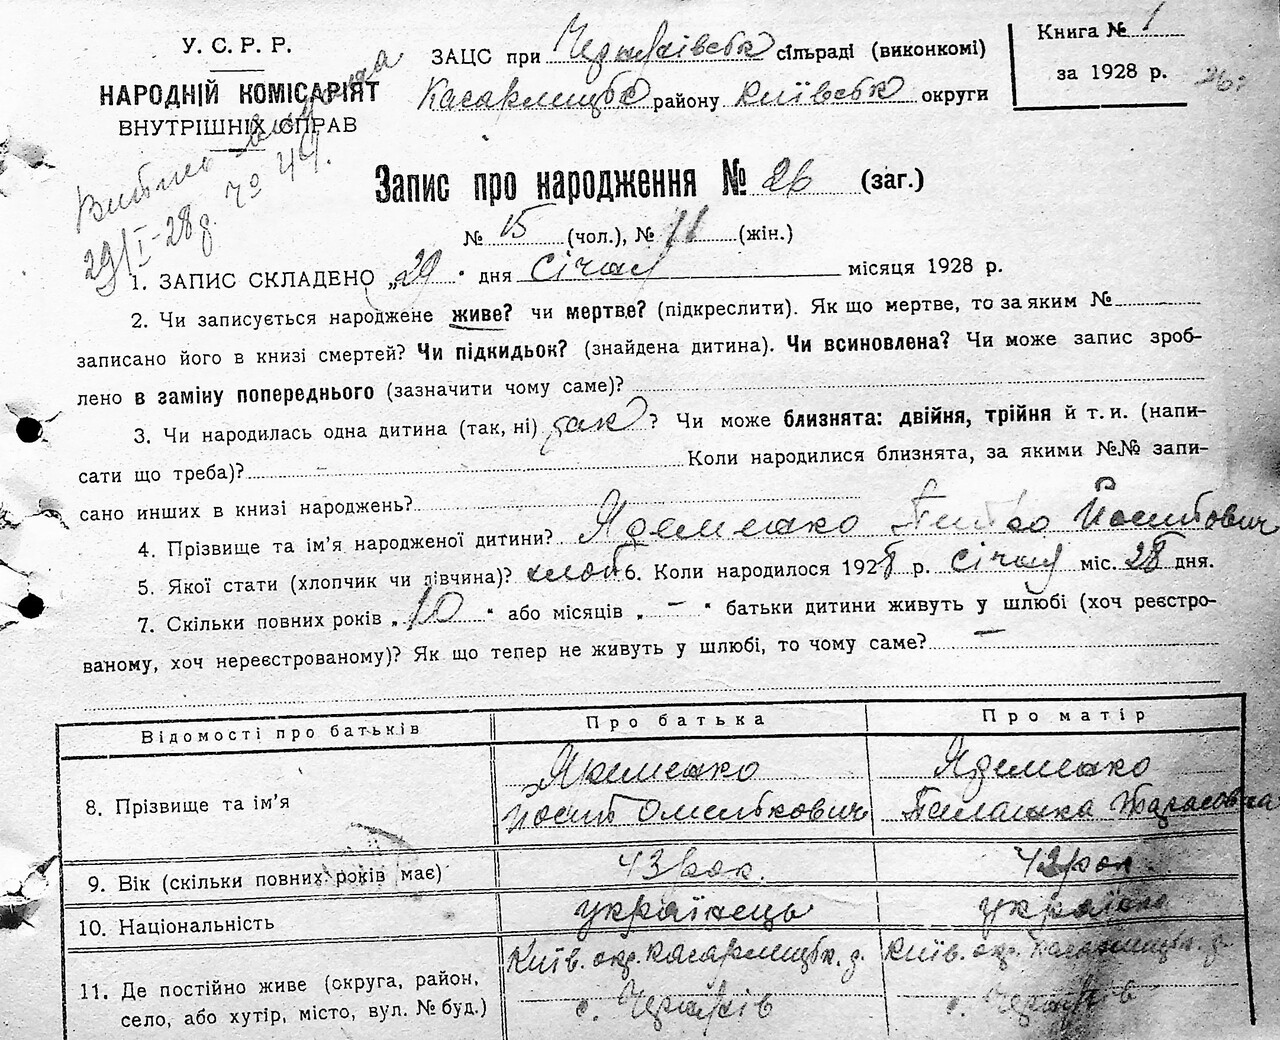 У. С. Р. Р.
НАРОДНІЙ КОМІСАРІЯТ
ВНУТРІШНІХ СПРАВ
ЗАЦС при сільраді (виконкомі)
району Київськ округи
Книга № 1
за 1928 р.
26
29/I-28 р. № 44.
Запис про народження № 26 (заг.)
№ 15 (чол.), № 11 (жін.)
1. ЗАПИС СКЛАДЕНО „29“ дня січня місяця 1928 р.
2. Чи записується народжене живе? чи мертве? (підкреслити). Як що мертве, то за яким №
записано його в книзі смертей? Чи підкидьок? (знайдена дитина). Чи всиновлена? Чи може запис зроб-
лено в заміну попереднього (зазначити чому саме)?
3. Чи народилась одна дитина (так, ні) так? Чи може близнята: двійня, трійня й т. и. (напи-
сати що треба)? – Коли народилися близнята, за якими №№ запи-
сано инших в книзі народжень?
4. Прізвище та ім'я народженої дитини? Йосипович
5. Якої стати (хлопчик чи дівчина)? хлоп 6. Коли народилося 1928 р. січня міс. 28 дня.
7. Скільки повних років „10“ або місяців „–“ батьки дитини живуть у шлюбі (хоч реєстро-
ваному, хоч нереєстрованому)? Як що тепер не живуть у шлюбі, то чому саме? –
Відомості про батьків Про батька Про матір
8. Прізвище та ім'я Якименко
Йосип Тарасовна
9. Вік (скільки повних років має) 43 рок. 42 рок.
10. Національність українець українка
11. Де постійно живе (округа, район, Київ. окр. Кагарлицьк. р. Київ. окр. Кагарлицьк. р.
село, або хутір, місто, вул. № буд.) с. с.